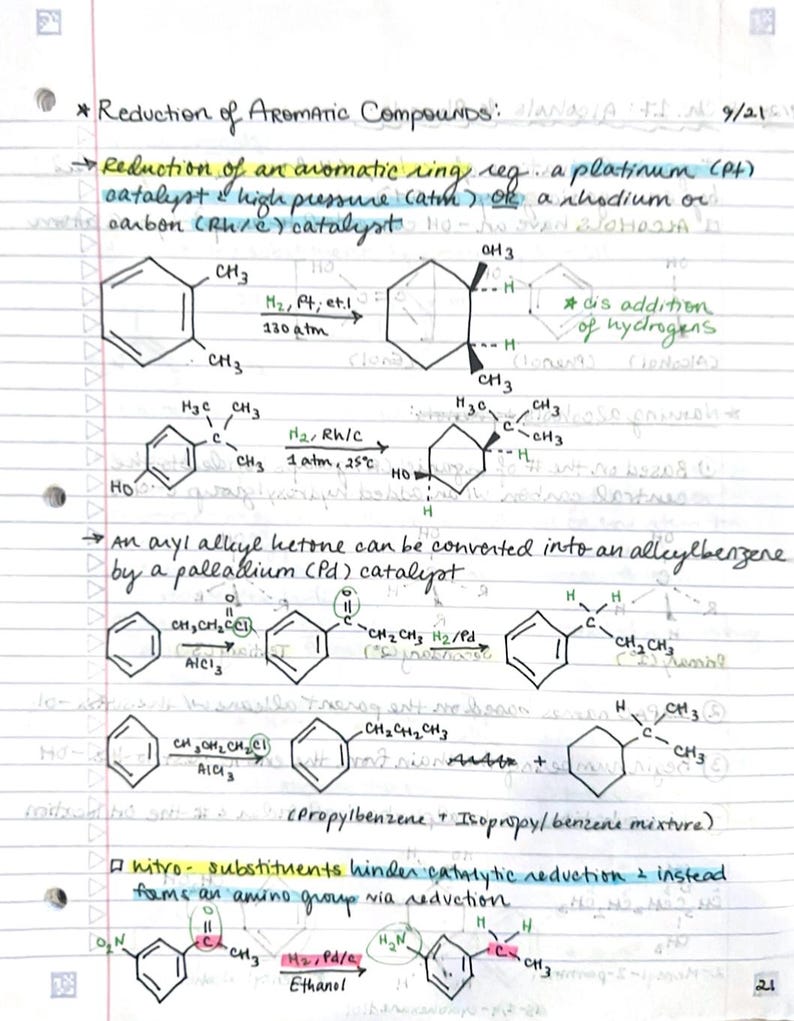 * Reduction of Aromatic Compounds: 9/21
→ Reduction of an aromatic ring req. a platinum (Pt)
catalyst & high pressure (atm) OR a rhodium or
carbon (Rh/C) catalyst
CH3
CH3
H2, Pt; et.l
130 atm
CH3
H
H
CH3
* cis addition
of hydrogens
H3C CH3
C
CH3
HO
H2, Rh/C
1 atm, 25°C
H3C CH3
C
CH3
H
HO
H
→ An aryl alkyl ketone can be converted into an alkylbenzene
by a palladium (Pd) catalyst
O
CH3CH2CCl
AlCl3
O
C
CH2CH3
H2/Pd
H H
C
CH2CH3
CH3CH2CH2Cl
AlCl3
CH2CH2CH3
+
H CH3
C
CH3
(Propylbenzene + Isopropylbenzene mixture)
□ nitro-substituents hinder catalytic reduction & instead
forms an amino group via reduction
O2N
O
C
CH3
H2, Pd/C
Ethanol
H2N
H H
C
CH3
21